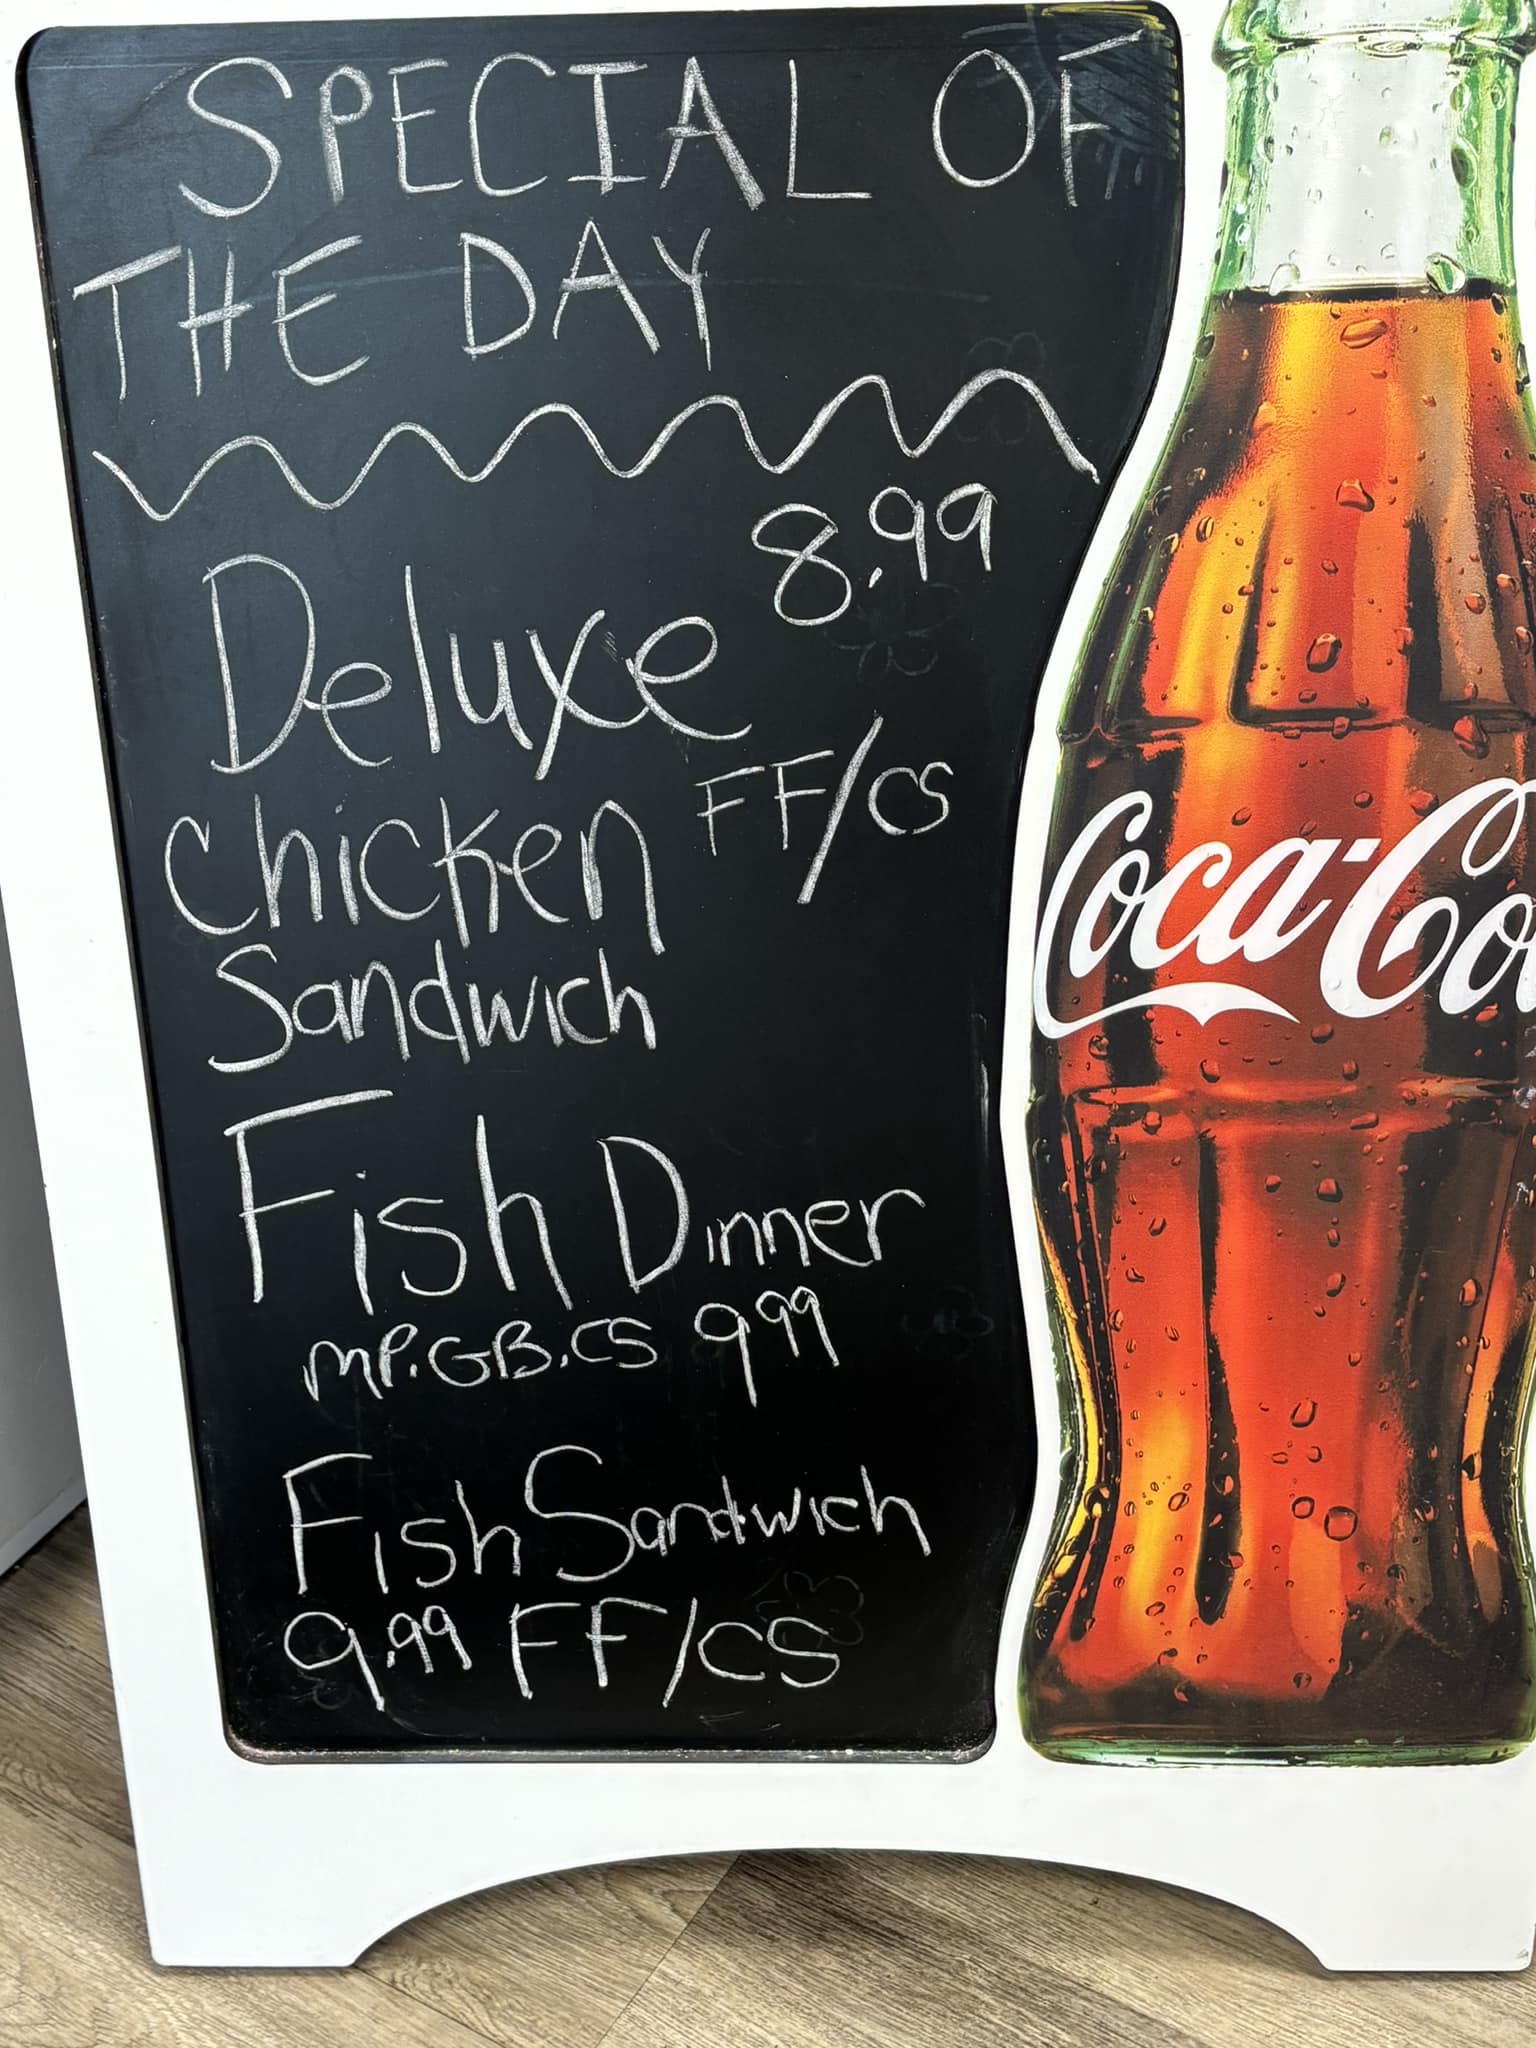 SPECIAL OF
THE DAY
8.99
Deluxe
Chicken FF/CS
Sandwich
Fish Dinner
MP.GB.CS 9.99
Fish Sandwich
9.99 FF/CS
Coca-Co